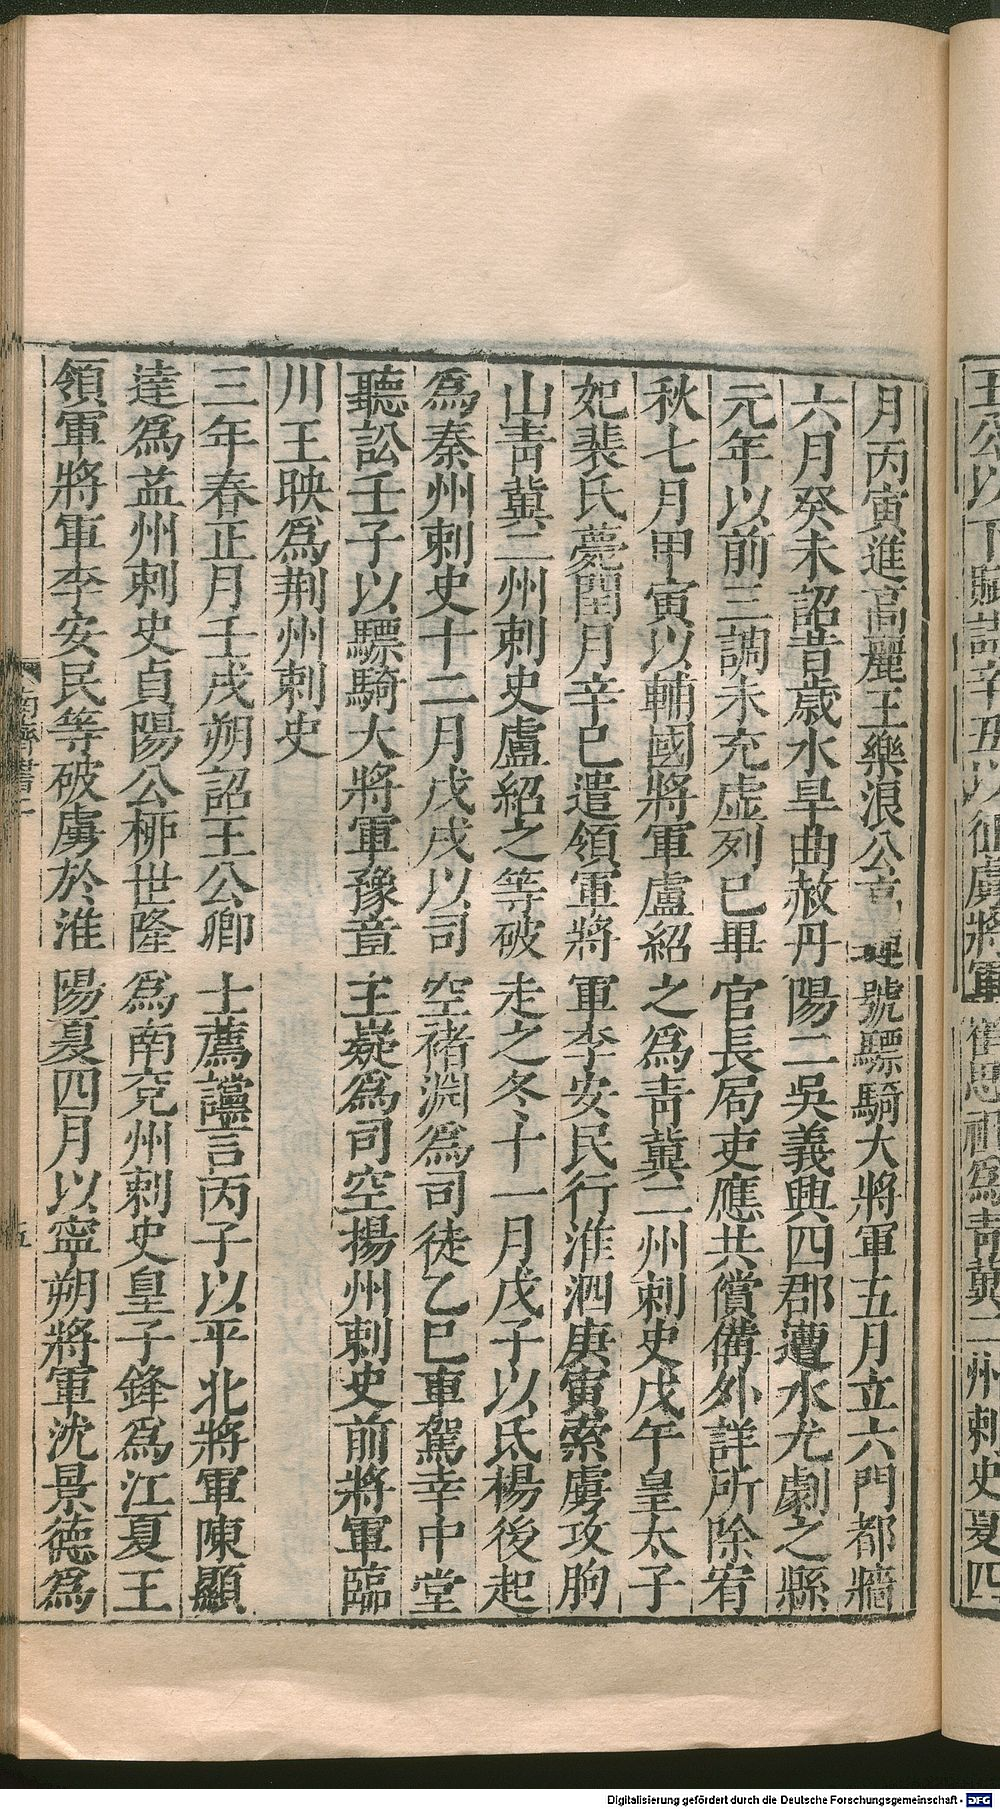 月丙寅進高麗王樂浪公高璉號驃騎大將軍五月立六門都牆
六月癸未詔昔歲水旱曲赦丹陽二吳義興四郡遭水尤劇之縣
元年以前三調未充虛列已畢官長局吏應共償備外詳所除宥
秋七月甲寅以輔國將軍盧紹之爲青冀二州刺史戊午皇太子
妃裴氏薨閏月辛巳遣領軍將軍李安民行淮泗庚寅索虜攻朐
山青冀二州刺史盧紹之等破走之冬十一月戊子以氐楊後起
爲秦州刺史十二月戊戌以司空褚淵爲司徒乙巳車駕幸中堂
聽訟壬子以驃騎大將軍豫章王嶷爲司空揚州刺史前將軍臨
川王映爲荆州刺史
三年春正月壬戌朔詔王公卿士薦讜言丙子以平北將軍陳顯
達爲益州刺史貞陽公柳世隆爲南兗州刺史皇子鋒爲江夏王
領軍將軍李安民等破虜於淮陽夏四月以寧朔將軍沈景德爲
南齊書二
五
崔思祖爲青冀二州刺史夏四
Digitalisierung gefördert durch die Deutsche Forschungsgemeinschaft - DFG